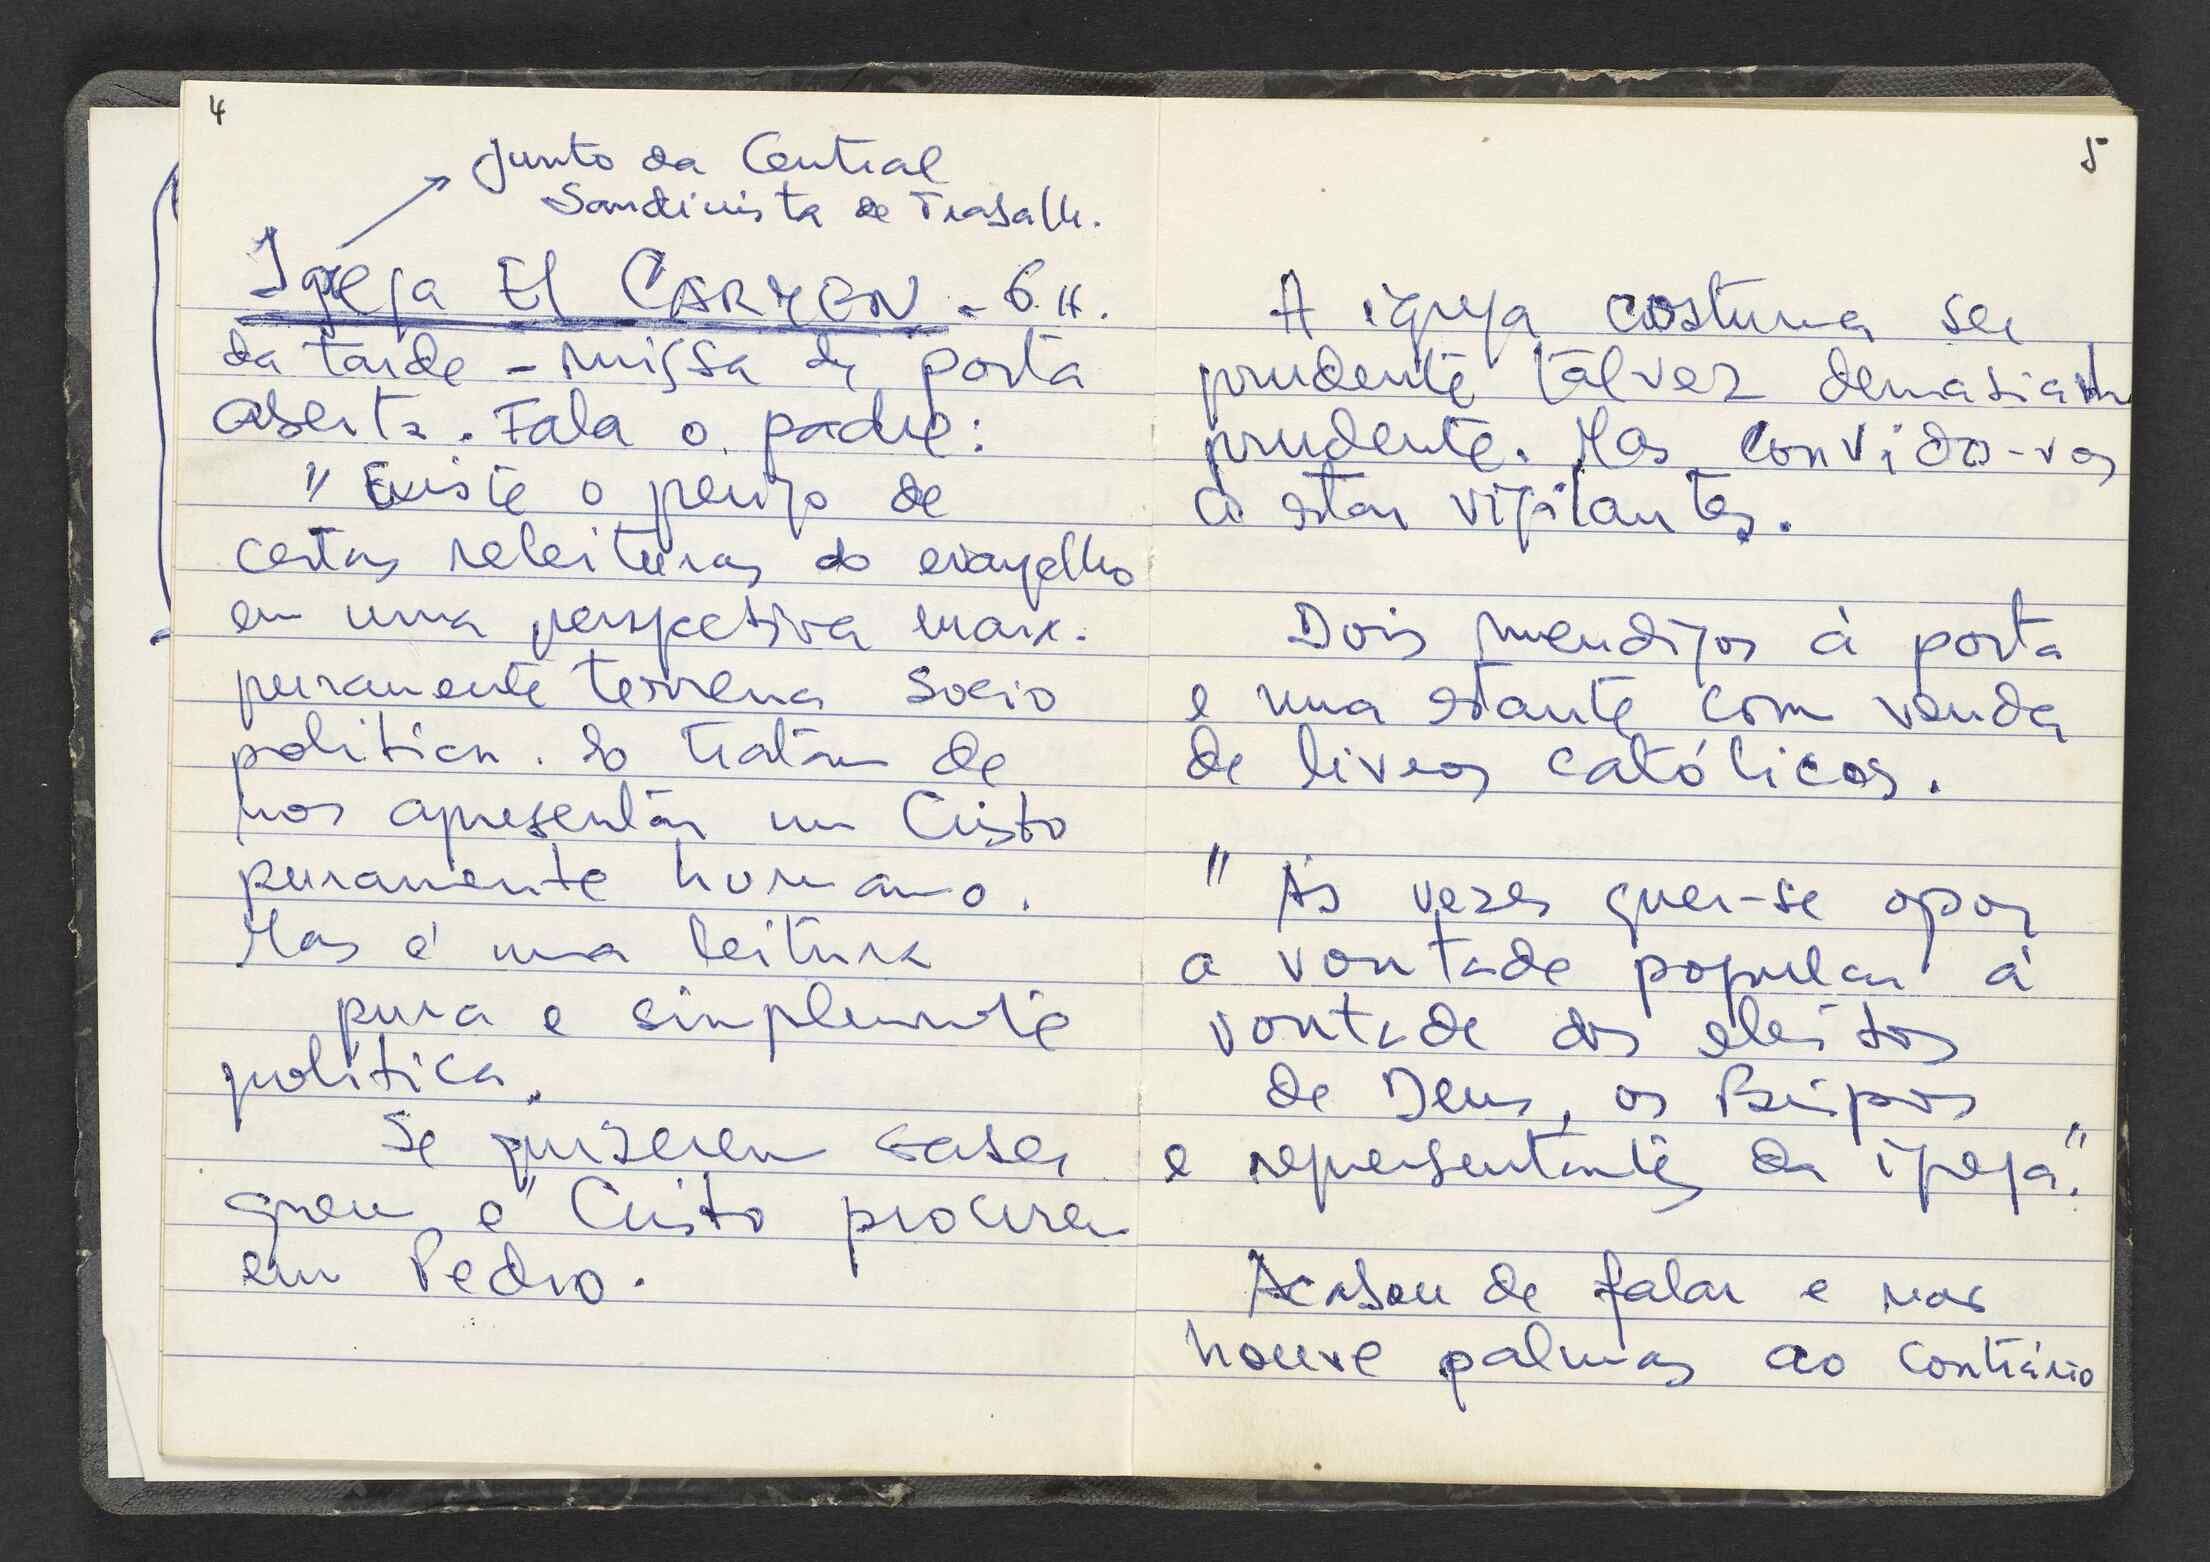 4
Junto da Central
Sandinista de Trabalh.
Igreja El CARMEN - 6 H.
da tarde - missa de porta
aberta. Fala o padre:
"Existe o perigo de
certas releituras do evangelho
em uma perspectiva marx.
puramente terrena socio
politica. Só tratam de
nos apresentar um Cristo
puramente humano.
Mas é uma leitura
pura e simplemente
política.
Se quizerem saber
quem é Cristo procurem
em Pedro.
5
A igreja costuma ser
prudente talvez demasiado
prudente. Mas convido-vos
a estar vigilantes.
Dois mendigos à porta
e uma estante com venda
de livros católicos.
"Às vezes quer-se opor
a vontade popular à
vontade dos eleitos
de Deus, os Bispos
e representantes da igreja".
Acabou de falar e nao
houve palmas ao contrário